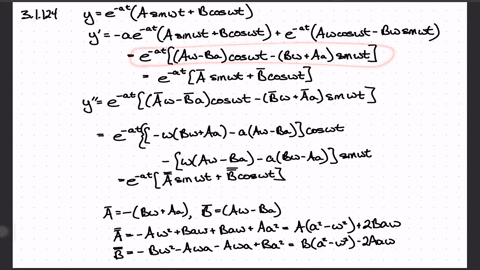 3.1.124 y = e^{-at}(A sinωt + B cosωt)
y' = -ae^{-at}(A sinωt + B cosωt) + e^{-at}(Aω cosωt - Bω sinωt)
= e^{-at}[(Aω - Ba)cosωt - (Bω + Aa)sinωt]
= e^{-at}[A̅ sinωt + B̅ cosωt]
y'' = e^{-at}[(A̅ω - B̅a)cosωt - (B̅ω + A̅a)sinωt]
= e^{-at}{[-ω(Bω + Aa) - a(Aω - Ba)]cosωt
- [ω(Aω - Ba) - a(Bω - Aa)]sinωt
= e^{-at}[A̿ sinωt + B̿ cosωt]
A̅ = -(Bω + Aa), B̅ = (Aω - Ba)
A̿ = -Aω² + Baω + Baω + Aa² = A(a² - ω²) + 2Baω
B̿ = -Bω² - Aωa - Aωa + Ba² = B(a² - ω²) - 2Aaω